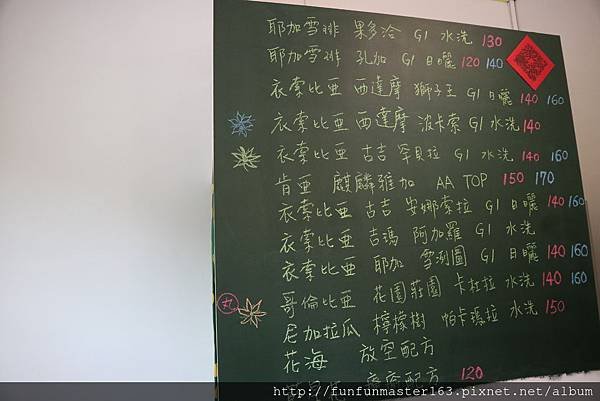 耶加雪啡 果多洽 G1 水洗 130
耶加雪啡 孔加 G1 日曬 120 140
衣索比亞 西達摩 獅子王 G1 日曬 140 160
衣索比亞 西達摩 波卡索 G1 水洗 140
衣索比亞 古吉 罕貝拉 G1 水洗 140 160
肯亞 麒麟雅加 AA TOP 150 170
衣索比亞 古吉 安娜索拉 G1 日曬 140 160
衣索比亞 吉瑪 阿加羅 G1 水洗
衣索比亞 耶加 雪洌圖 G1 日曬 140 160
哥倫比亞 花園莊園 卡杜拉 水洗 140 160
尼加拉瓜 檸檬樹 帕卡瑪拉 水洗 150
花海 放空配方
配方 120
http://funfunmaster163.pixnet.net/album